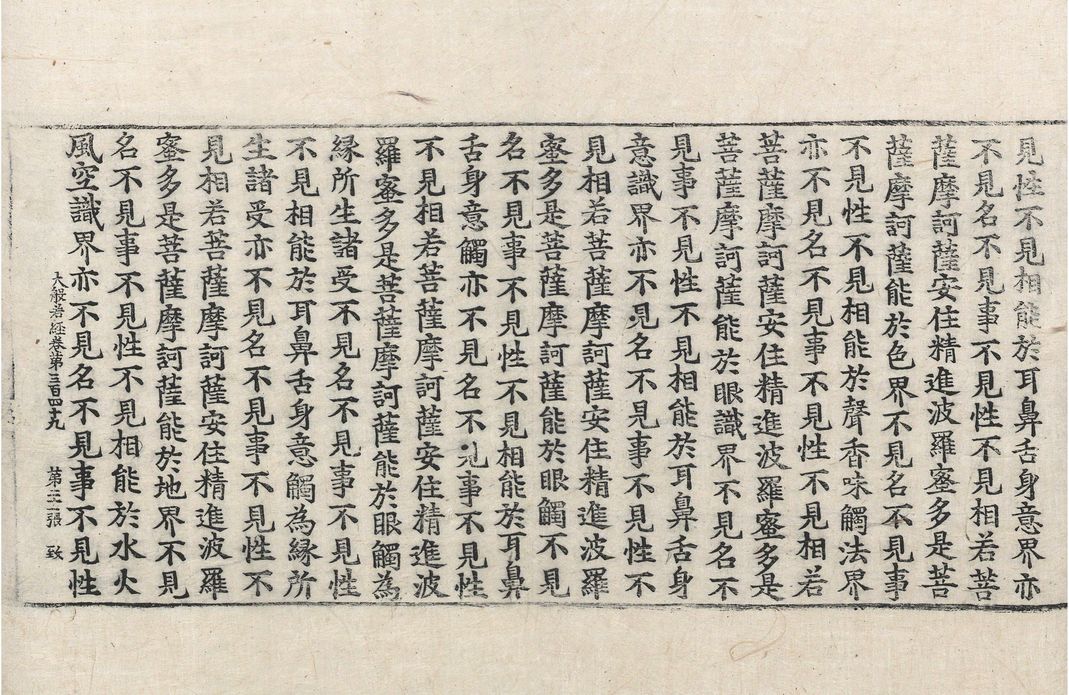 見性不見相能於耳鼻舌身意界亦
不見名不見事不見性不見相若菩
薩摩訶薩安住精進波羅蜜多是菩
薩摩訶薩能於色界不見名不見事
不見性不見相能於聲香味觸法界
亦不見名不見事不見性不見相若
菩薩摩訶薩安住精進波羅蜜多是
菩薩摩訶薩能於眼識界不見名不
見事不見性不見相能於耳鼻舌身
意識界亦不見名不見事不見性不
見相若菩薩摩訶薩安住精進波羅
蜜多是菩薩摩訶薩能於眼觸不見
名不見事不見性不見相能於耳鼻
舌身意觸亦不見名不見事不見性
不見相若菩薩摩訶薩安住精進波
羅蜜多是菩薩摩訶薩能於眼觸為
縁所生諸受不見名不見事不見性
不見相能於耳鼻舌身意觸為縁所
生諸受亦不見名不見事不見性不
見相若菩薩摩訶薩安住精進波羅
蜜多是菩薩摩訶薩能於地界不見
名不見事不見性不見相能於水火
風空識界亦不見名不見事不見性
大般若經卷第三百四九 致